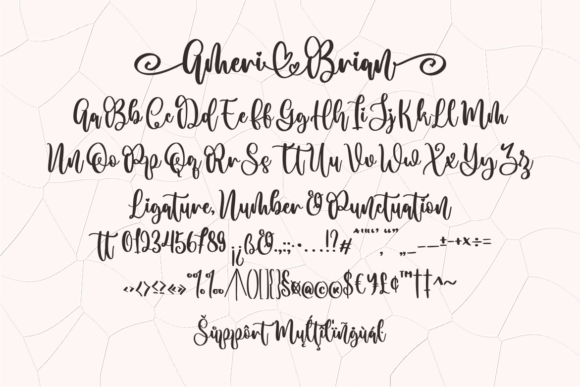 Ameri Brian
Aa Bb Cc Dd Ee Ff Gg Hh Ii Jj Kk Ll Mm
Nn Oo Pp Qq Rr Ss Tt Uu Vv Ww Xx Yy Zz
Ligature, Number & Punctuation
tt 0123456789 ¡¿ß&.,:;·•…!?# "'"'‘’ , “” „_–—±-+×÷=
‹›<>≤≥«» °%‰/\()[]{}§¤@©®$€¥£¢™†‡^~
Šüppôrt Mųĺţįlïñğùál